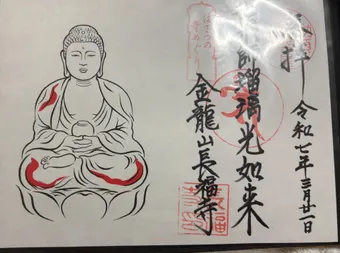 奉拝
令和七年三月廿一日
薬師瑠璃光如来
金龍山長福寺